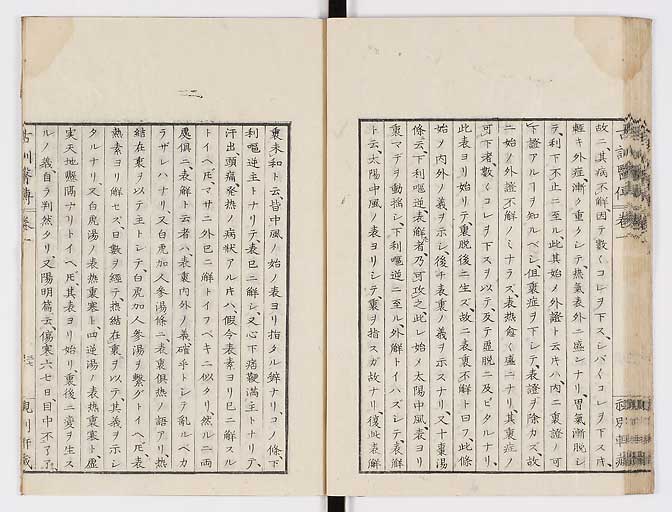 故ニ、其病不解因テ數〱コレヲ下ス、シバ〱コレヲ下ス片、
輕キ外症、漸ク重クシテ熱氣表外ニ盛ンナリ、胃氣漸脱シ
テ、利下不止ニ至ル、此其始ノ外證ト云片ハ、内ニ裏證ノ可
下證アルヿヲ知ルベシ、但裏症ヲ下シテ、表證ヲ除カズ、故
ニ始ノ外證不解ノミナラズ、表熱愈〱盛ニナリ、其裏症ノ
可下者、數〱コレヲ下スヲ以テ、及テ虚脱ニ及ビタルナリ、
此表ヨリ始リテ、裏脱後ニ生ズ、故ニ表裏不解ト曰フ、此條
始ノ内外ノ義ヲ示シ、後チ表裏ノ義ヲ示スナリ、又十棗湯
條云、下利嘔逆、表解者、乃可攻之、此レ始ノ太陽中風、表ヨリ
裏マデヲ動搖シ、下利嘔逆ニ至ル、外解トイハズシテ、表解
ト云、太陽中風ノ表ヨリシテ、裏ヲ指スガ故ナリ、後此表解
裏未和ト云、皆中風ノ始ノ表ヨリ指タル辨ナリ、コノ條、下
利嘔逆主トナリテ、表已ニ解シ、又心下痞鞕滿主トナリテ、
汗出頭痛、發熱ノ病状アル片ハ、假令表素ヨリ已ニ解スル
トイヘ𪜈、マサニ外已ニ解トイフベキニ似タリ、然ルニ両
處俱ニ、表解ト云者ハ、表裏内外ノ義、確乎トシテ乱ルベカ
ラザレハナリ、又白虎加人參湯條ニ、表裏俱熱ノ語アリ、熱
結在裏ヲ以テ主トシテ、白虎加人參湯ヲ繋グトイヘ𪜈、表
熱素ヨリ解セズ、日數ヲ經テ、熱結在裏ヲ以テ、其義ヲ示シ
タルナリ、又白虎湯ノ表熱裏寒ト、四逆湯ノ表熱裏寒ト、虚
実天地懸隔ナリトイヘ𪜈、其表ヨリ始リ、裏後ニ変ヲ生ス
ルノ義、自ラ判然タリ、又陽明篇云、傷寒六七日、目中不了了、
古訓醫傳 卷一